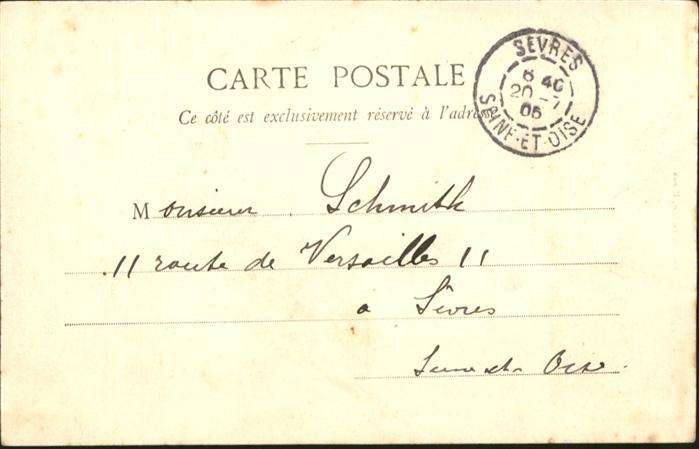 CARTE POSTALE
Ce côté est exclusivement réservé à l'adresse
SEVRES
6 40
20 - 7
05
SEINE-ET-OISE
Monsieur Schmith
11 route de Versailles 11
a Sèvres
Seine et Oise